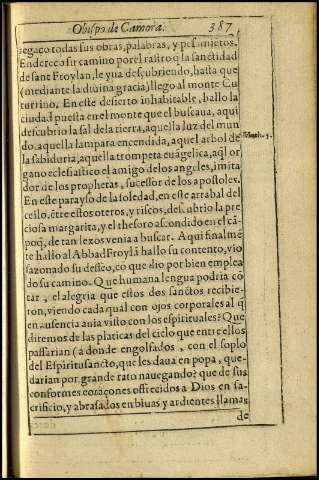 Obispo de Çamora. 387
regaço todas sus obras, palabras, y pesamiẽtos.
Endereço su camino por el rastro q̃ la sanctidad
de sant Froylan, le yua descubriendo, hasta que
(mediante la diuina gracia) llego al monte Cu
turrino, En este desierto inhabitable, hallo la
ciudad puesta en el monte que el buscaua, aqui
descubrio la sal dela tierra, aquella luz del mun
do, aquella lampara encendida, aquel arbol de
la sabiduria, aquella trompeta euãgelica, aq̃l or
gano eclesiastico el amigo delos angeles, imita
dor de los prophetas, sucessor de los apostoles.
En este parayso de la soledad, en este arrabal del
cielo, ẽtre estos oteros, y riscos, descubrio la pre
ciosa margarita, y el thesoro ascondido en el cã-
po q̃, de tan lexos venia a buscar. Aqui finalmẽ
te hallo al Abbad Froylã hallo su contento, vio
sazonado su desseo, cõ que dio por bien emplea
do su camino. Que humana lengua podria cõ
tar, el alegria que estos dos sanctos recibie-
ron, viendo cada qual con ojos corporales al q̃
en ausencia auia visto con los espirituales? Que
diremos de las platicas del cielo que entre ellos
passarian (a donde engolfados, con el soplo
del Espiritusancto, que les daua en popa, que-
darian por grande rato nauegando? que de sus
conformes coraçones ofrecidos a Dios en sa-
crificio, y abrasados en biuas y ardientes llamas
de
Matth. 5.